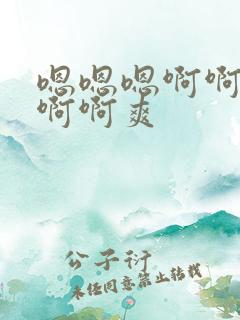 嗯嗯嗯啊啊
啊啊爽
公子衍
未经同意禁止转载